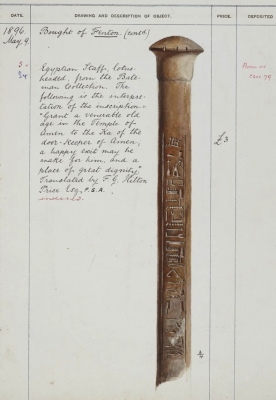 DATE. DRAWING AND DESCRIPTION OF OBJECT. PRICE. DEPOSITED
1896. Bought of Fenton. (contd)
May. 9.
Egyptian Staff, lotus-
headed, from the Bate-
man Collection. The
following is the interpre-
tation of the inscription:-
"Grant a venerable old
age in the Temple of
Amen to the Ka of the
door-keeper of Amen,
a happy exit may be
made for him, and a
place of great dignity"
Translated by F. G. Hilton
Price Esq., F.S.A.
£3